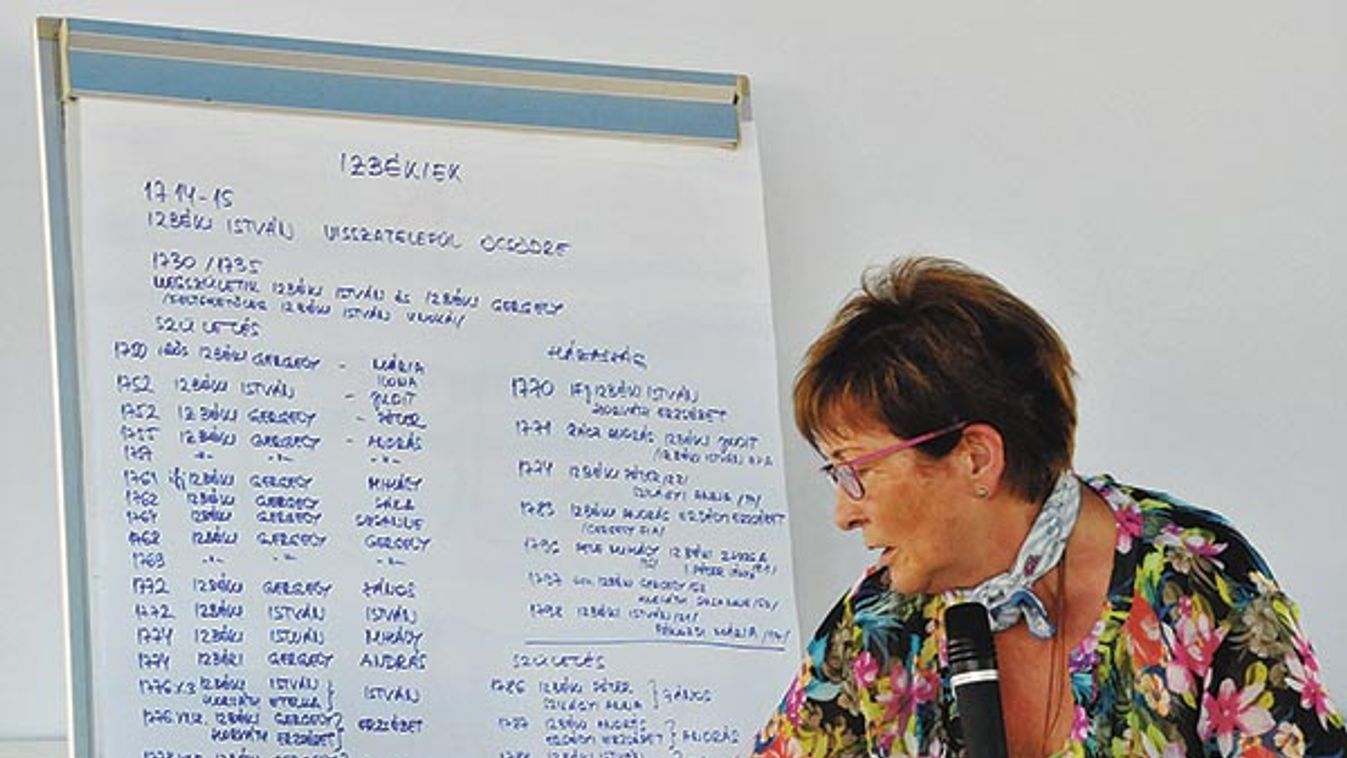 IZBÉKIEK
1714-15
IZBÉKI ISTVÁN VISSZATELEPÜL ÖCSÖDRE
1730/1735
MEGSZÜLETIK IZBÉKI ISTVÁN ÉS IZBÉKI GERGELY
/FELTEHETŐLEG IZBÉKI ISTVÁN
SZÜLETÉS
1750 IDŐS IZBÉKI GERGELY - MÁRIA
ILONA
1752 IZBÉKI ISTVÁN - JUDIT
1752 IZBÉKI GERGELY - PÉTER
1755 IZBÉKI GERGELY - ANDRÁS
-"- -"- -"-
1761 ifj IZBÉKI GERGELY MIHÁLY
1762 IZBÉKI GERGELY SÁRA
1764 IZBÉKI GERGELY
1768 IZBÉKI GERGELY GERGELY
1769 -"- -"- -"-
1772 IZBÉKI GERGELY JÁNOS
1772 IZBÉKI ISTVÁN ISTVÁN
1774 IZBÉKI ISTVÁN MIHÁLY
1774 IZBÉKI GERGELY ANDRÁS
1776 X.3 IZBÉKI ISTVÁN } ISTVÁN
HORVÁTH
1776 IZBÉKI GERGELY } ERZSÉBET
HORVÁTH ERZSÉBET
HÁZASSÁG
1770 IFJ IZBÉKI ISTVÁN
HORVÁTH ERZSÉBET
1771 RÁCZ ANDRÁS IZBÉKI JUDIT
/IZBÉKI ISTVÁN
1774 IZBÉKI PÉTER /22/
SZILÁGYI ANNA /19/
1783 IZBÉKI ANDRÁS ERZSÉBET
/GERGELY FIA/
MIHÁLY IZBÉKI
1797 IZBÉKI GERGELY
1798 IZBÉKI ISTVÁN /21/
MÁRIA /19/
SZÜLETÉS
1786 IZBÉKI PÉTER } JÁNOS
SZILÁGYI ANNA
1787 IZBÉKI ANDRÁS } ANDRÁS
ERZSÉBET
IZBÉKI ISTVÁN